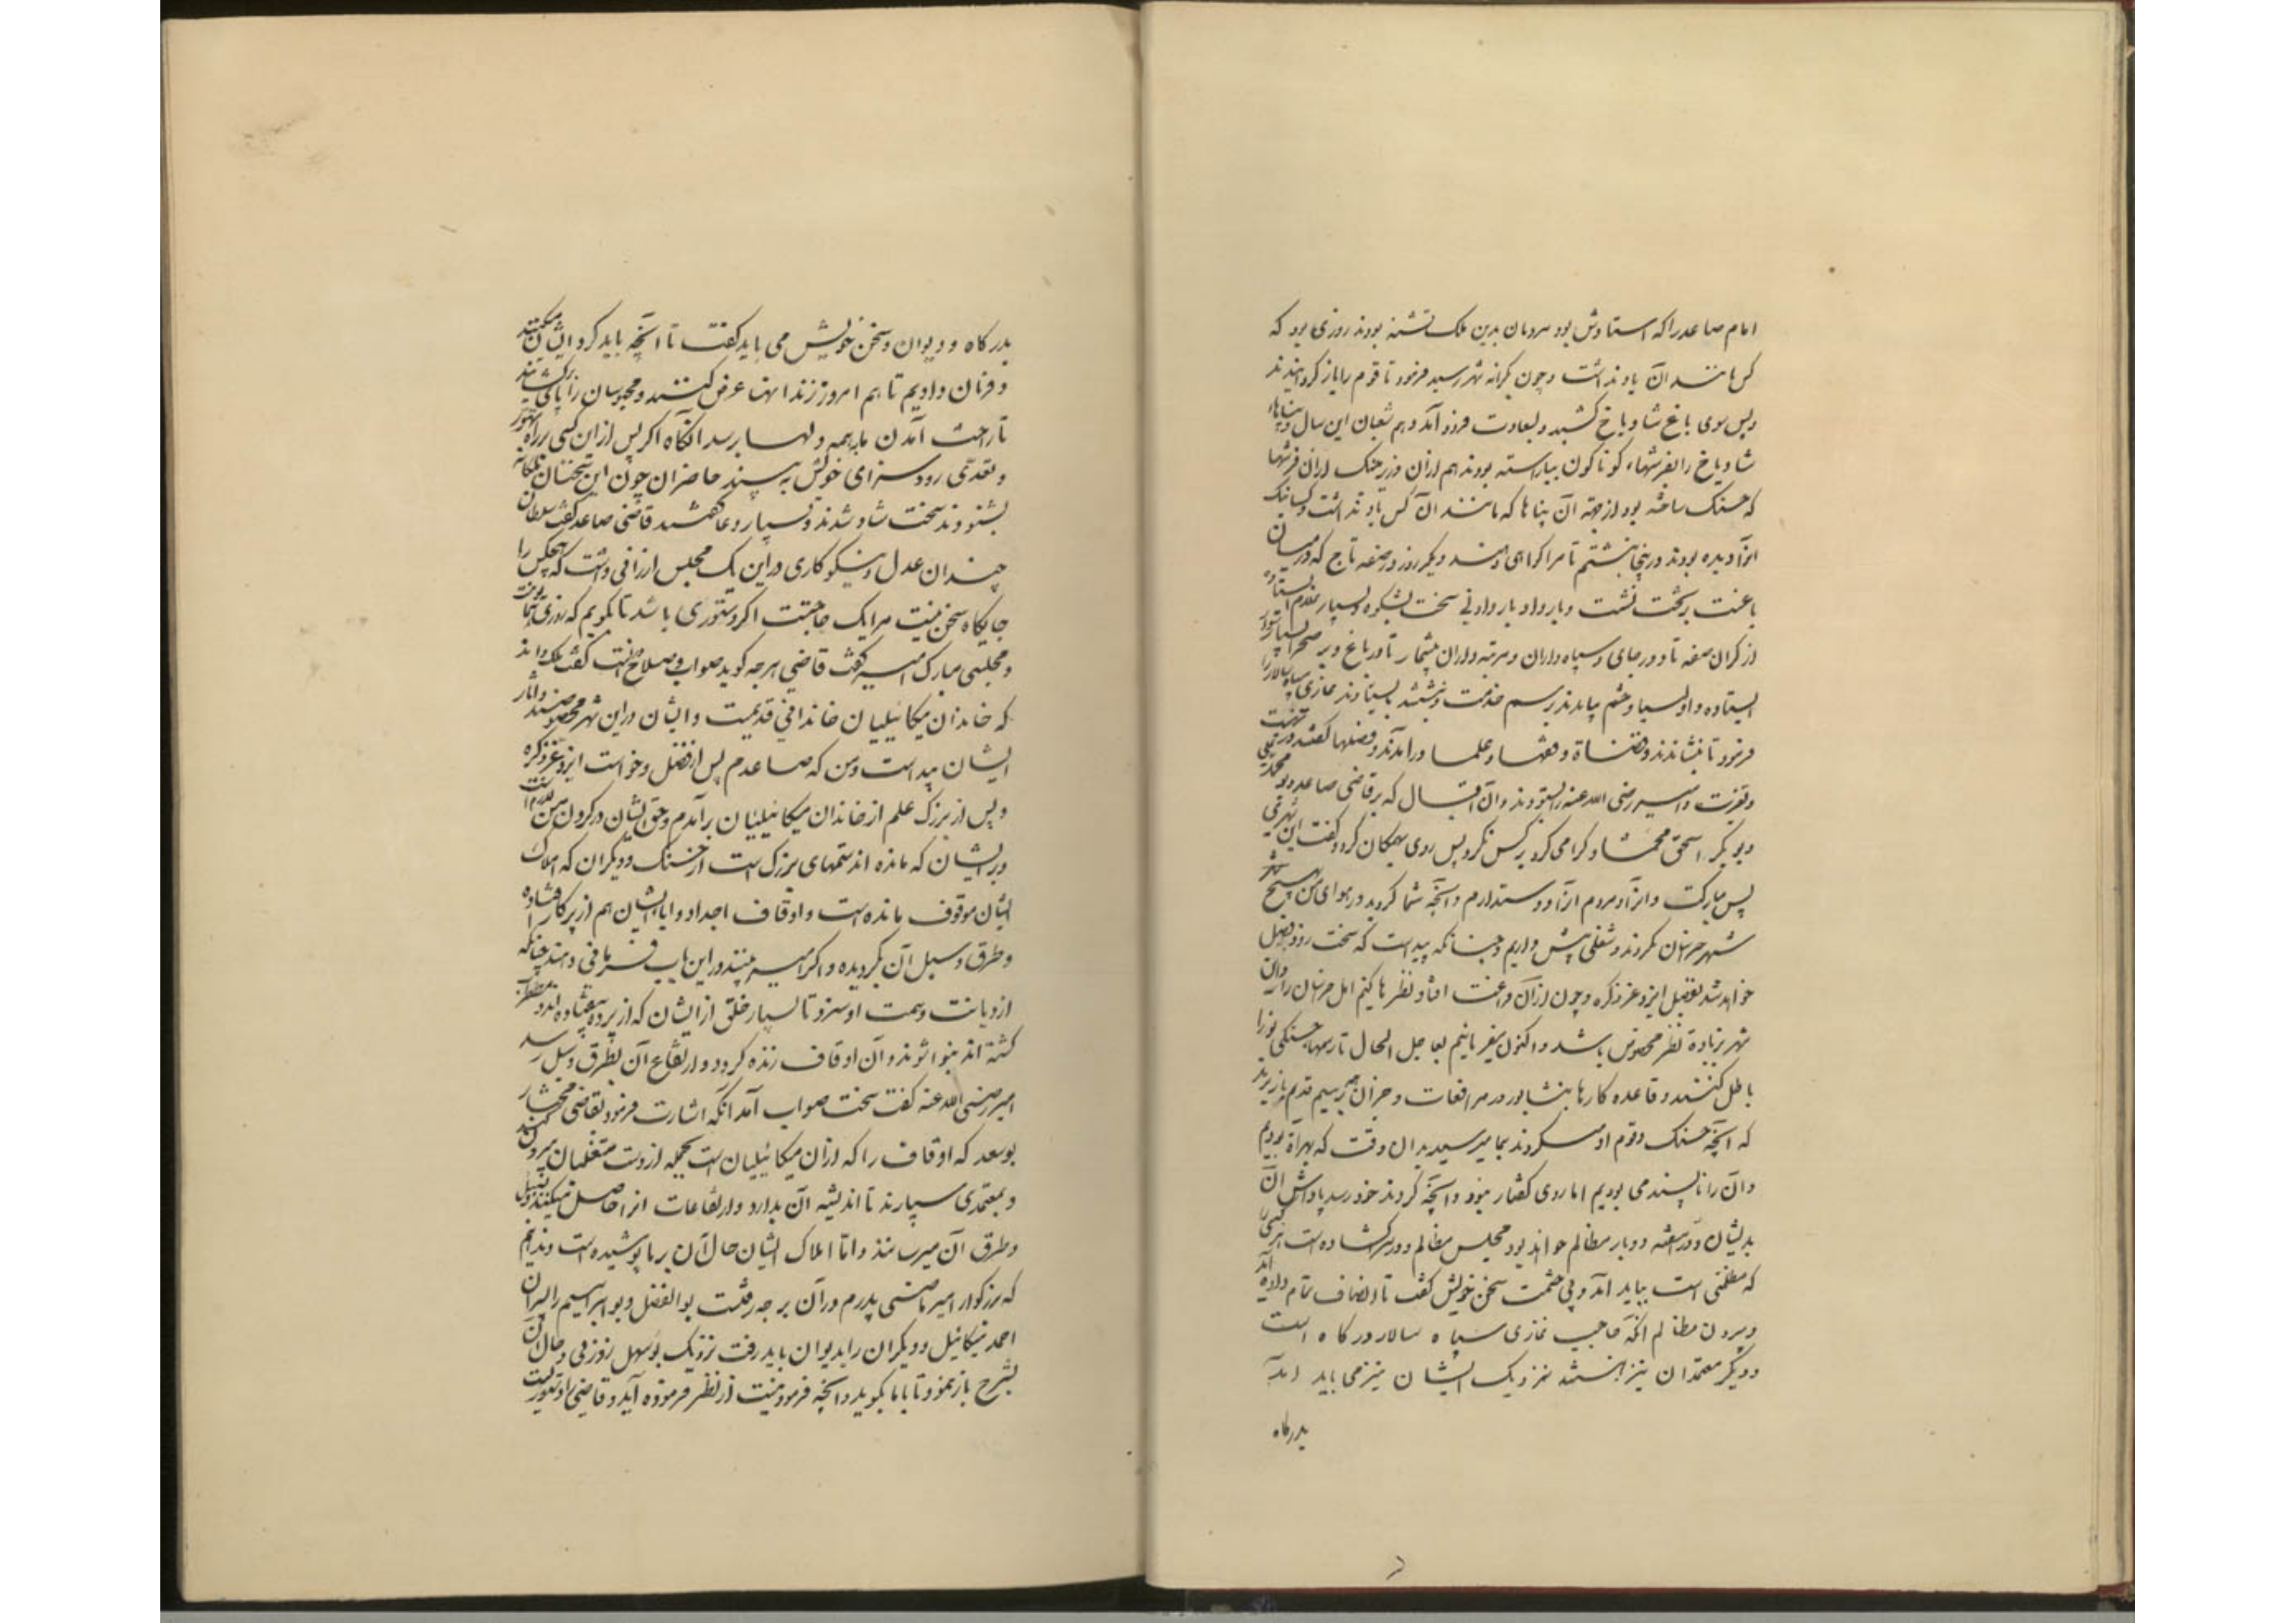 امام صاعد را که استادش بود مردمان بدین ملک تشنه بودند روزی بود که
کس مانند آن یاد نداشت و چون بکرانه شهر رسید فرمود تا قوم را باز کردانیدند
و پس سوی باغ شادیاخ کشید و بسعادت فرود آمد دهم شعبان این سال و بناهاء
شادیاخ را بفرشهاء کوناکون بیاراسته بودند هم ازان وزیر حسنک ازان فرشها
که حسنک ساخته بود از جهة آن بناها که مانند آن کس یاد نداشت و کسانیکه
انرا دیده بودند در اینجا نبشتم تا مرا کواهی دهند دیکر روز در صفه تاج که در میان
باغست بر تخت نشست و بار داد بار دادنی سخت بشکوه و بسیار غلام ایستاده
از کران صفه تا دور جای و سپاه داران و مرتبه داران بیشمار تا در باغ و بر صحرا بسیار سوار
ایستاده و اولیا و حشم بیامدند برسم خدمت و بنشستند و بایستادند غازی سپاه سالار را
فرمود تا بنشاندند و قضاة و فقها و علما درآمدند و فصلها کفتند در تهنیت
و تعزیت و امیر رضی الله عنه را بستودند و آن اقبال که بر قاضی صاعد و بو محمد علوی
و بوبکر اسحق محمشاد کرامی کرد بر کس نکرد پس روی بهمکان کرد و کفت این شهری
بس مبارکست و انرا و مردم انرا دوستدارم و آنچه شما کردید در هوای من بهیچ شهر
شهر خراسان نکردند و شغلی پیش داریم و چنانکه پیداست که سخت زود فیصل
خواهد شد بفضل ایزد عز ذکره و چون ازان فراغت افتاد نظرها کنیم اهل خراسان را و این
شهر بزیادة نظر مخصوص باشد و اکنون میفرمائیم بعاجل الحال تا رسمها حسنکی نو را
باطل کنند و قاعده کارها بنشابور در مرافعات و جز آن همه برسم قدیم باز برند
که آنچه حسنک و قوم او میکردند بما میرسید بدان وقت که بهراة بودیم
و آن را ناپسند می بودیم اما روی کفتار نبود و آنچه کردند خود رسد پاداش آن
بدیشان و در هفته دوبار مظالم خواهد بود مجلس مظالم و در سرای کشاده است هر کسی را
که مظلمتی است بباید آمد و بی حشمت سخن خویش کفت تا انصاف تمام داده آید
و بیرون مظالم انکه حاجب غازی سپاه سالار درکاه است
و دیکر معتمدان نیز هستند نزدیک ایشان نیز می باید آمد
بدرکاه
بدرکاه و دیوان و سخن خویش می باید کفت تا آنچه باید کرد ایشان میکنند
و فرمان دادیم تا هم امروز زندانها عرض کنند و محبوسان را پای کشایند
تا راحت آمدن ما بهمه دلها برسد انکاه اکر پس از این کسی بر راه تهور
و تعدی رود سزای خویش ببیند حاضران چون این سخنان ملکانه
بشنودند سخت شاد شدند و بسیار دعا کفتند قاضی صاعد کفت سلطان
چندان عدل و نیکوکاری در این یک مجلس ارزانی داشت که هیچکس را
جایکاه سخن نیست مرا یک حاجتست اکر دستوری باشد تا بکویم که روزی همایونست
و مجلسی مبارک امیر کفت قاضی هر چه کوید صواب و صلاح دانست کفت ملک داند
که خاندان میکائیلیان خاندانی قدیمیست و ایشان در این شهر مخصوصند و اثار
ایشان پیداست و من که صاعدم پس از فضل و خواست ایزد عز ذکره
و پس از بزرک علم از خاندان میکائیلیان برآمدم و حق ایشان در کردن من لازم است
و بر ایشان که مانده اند ستمهای بزرک است از حسنک و دیکران که املاک
ایشان موقوف مانده است و اوقاف اجداد و آباء ایشان هم از پرکار افتاده
و طرق و سبل آن بکردیده و اکر امیر بیند در این باب فرمانی دهد چنانکه
از دیانت و همت او سزد تا بسیار خلق از ایشان که از پرده بیفتاده اند و مضطرب
کشته اند بنوا شوند و آن اوقاف زنده کردد و ارتفاع آن بطرق و سبل رسد
امیر رضی الله عنه کفت سخت صواب آمد آنکه اشارت فرمود بقاضی مختار
بوسعد که اوقاف را که ازان میکائیلیان است بجمله از دست متغلبان بیرون کند
و بمعتمدی سپارند تا اندیشه آن بدارد و ارتفاعات انرا حاصل میکند و بسبیل
و طرق آن میرسانند و اما املاک ایشان حال آن بر ما پوشیده است و ندانیم
که بزرکوار امیر ماضی پدرم در آن بر چه رفتست بوالفضل و بوابراهیم را پسران
احمد میکائیل و دیکران را بدیوان باید رفت نزدیک بوسهل زوزنی و حال آن
بشرح باز نمود تا با ما بکوید و آنچه فرمودنیست از نظر فرموده آید و قاضی را دستوریست